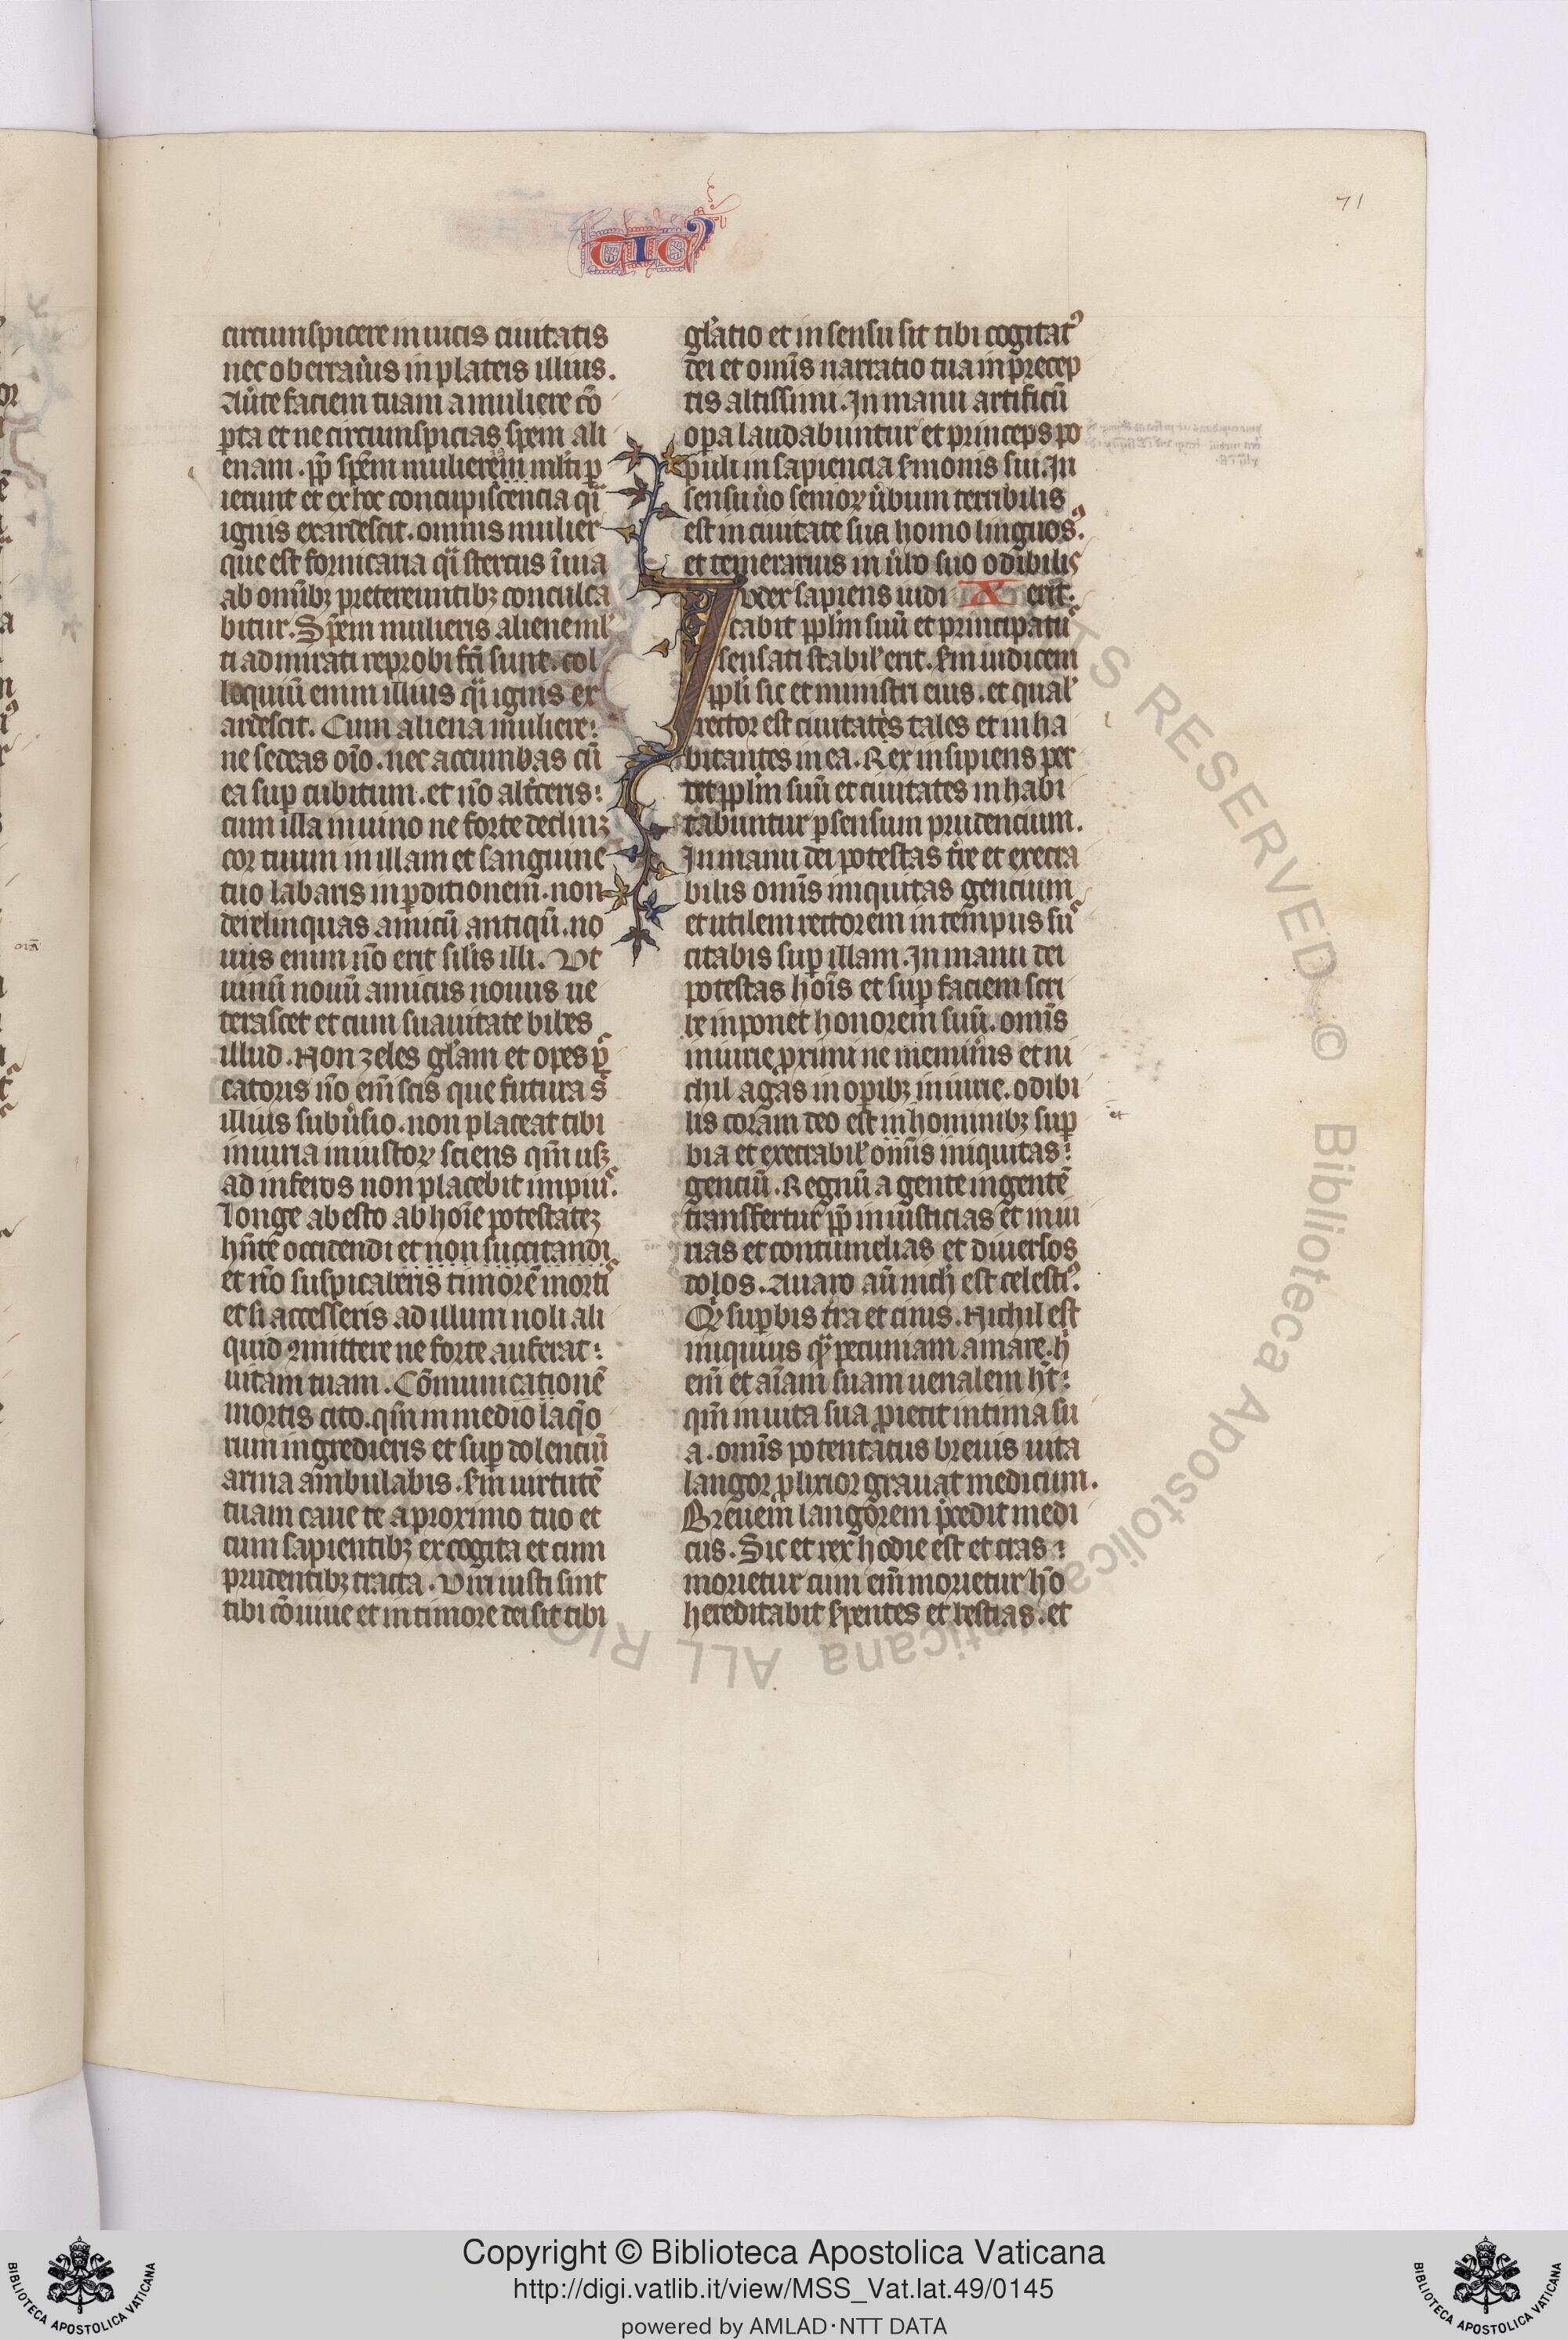 71
TIC9
circumspicere in uicis ciuitatis
nec oberraũis in plateis illius.
Aũte faciem tuam a muliere cõ
pta et ne circumspicias spem ali
enam. pp̃ spẽm mulierem mlti p
ierunt et ex hoc concupiscencia qͥ
ignis exardescit. omnis mulier
que est fornicaria qͣ stercus ĩ uia
ab omĩbꝫ pretereuntibꝫ conculca
bitur. Spẽm mulieris aliene ml'
ti admirati reprobi fc̃i sunt. col
loquiũ enim illius qͣ ignis ex
ardescit. Cum aliena muliere:
ne sedeas oĩo. nec accumbas cũ
ea sup cubitum. et nõ alt̾ceris:
cum illa in uino ne forte declinꝫ
cor tuum in illam et sanguine
tuo labaris in pditionem. non
derelinquas amicũ antiqũ. no
uus enim nõ erit sil'is illi. Vt
uinũ nouũ amicus nouus ue
terascet et cum suauitate bibes
illud. Non zeles gl'am et opes p̃
catoris nõ em̃ scis que futura s̃
illius subũsio. non placeat tibi
iniuria iniustoꝝ sciens qm̃ usqꝫ
ad inferos non placebit impiuˢ.
Longe abesto ab hoĩe potestateꝫ
hñtẽ occidendi et non succitandi
et nõ suspicaberis timorẽ mortiˢ
et si accesseris ad illum noli ali
quid ꝯmittere ne forte auferat:
uitam tuam. Cõmunicationẽ
mortis cito. qm̃ in medio laqͦo
rum ingredieris et sup dolenciũ
arma ambulabis. Sm̃ uirtutẽ
tuam caue te a proximo tuo et
cum sapientibꝫ excogita et cum
prudentibꝫ tracta. Viri iusti sint
tibi cõuiue et in timore dei sit tibi
gl'atio et in sensu sit tibi cogitatꝰ
dei et omĩs narratio tua in precep
tis altissimi. In manu artificũ
opa laudabuntur et princeps po
puli in sapiencia s̾monis sui. In
sensu ũo senioꝝ ũbum terribilis
est in ciuitate sua homo linguosꝰ.
et temerarius in ũbo suo odibilis
Iudex sapiens iudi X erit:
cabit ppl'm suũ et principatuˢ
sensati stabil' erit. Sm̃ iudicem
ppl'i sic et ministri eius. et qual'
rector est ciuitatis tales et inha
bitantes in ea. Rex insipiens per
det ppl'm suũ et ciuitates inhabi
tabuntur p sensum prudencium.
In manu dei potestas t̾re et execra
bilis omĩs iniquitas gencium
et utilem rectorem in tempus suˢ
citabis sup illam. In manu dei
potestas hoĩs et sup faciem scri
be inponet honorem suũ. omĩs
iniurie proximi ne memiñis et ni
chil agas in opibꝫ iniurie. odibi
lis coram deo est in hominibꝫ sup
et
bia et execrabil' omĩs iniquitas:
genciũ. Regnũ a gente in gentẽ
transfertur pp̃ iniusticias et iniu
rias et contumelias et diuersos
dolos. Auaro aũ nich' est celestiꝰ.
Qͥ supbis t̾ra et cinis. Nichil est
iniquius qͣ pecuniam amare. h'
em̃ et aĩam suam uenalem ht̃:
qm̃ in uita sua proiecit intima su
a. omĩs potentatus breuis uita
langor prolixior grauat medicum.
Breuem langorem p̾cedit medi
cus. Sic et rex hodie est et cras:
morietur cum em̃ morietur hõ
hereditabit s̾pentes et bestias. et
ALL RIGHTS RESERVED © Biblioteca Apostolica Vaticana
Copyright © Biblioteca Apostolica Vaticana
http://digi.vatlib.it/view/MSS_Vat.lat.49/0145
powered by AMLAD·NTT DATA
BIBLIOTECA APOSTOLICA VATICANA
BIBLIOTECA APOSTOLICA VATICANA